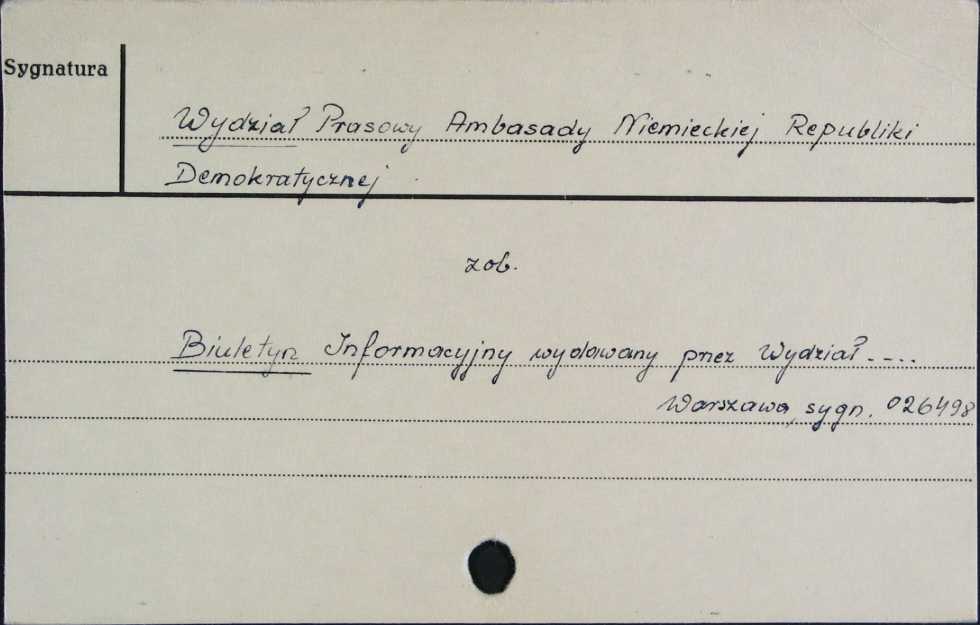 Sygnatura
Wydział Prasowy Ambasady Niemieckiej Republiki
Demokratycznej
zob.
Biuletyn Informacyjny wydawany przez Wydział....
Warszawa, sygn. 026498